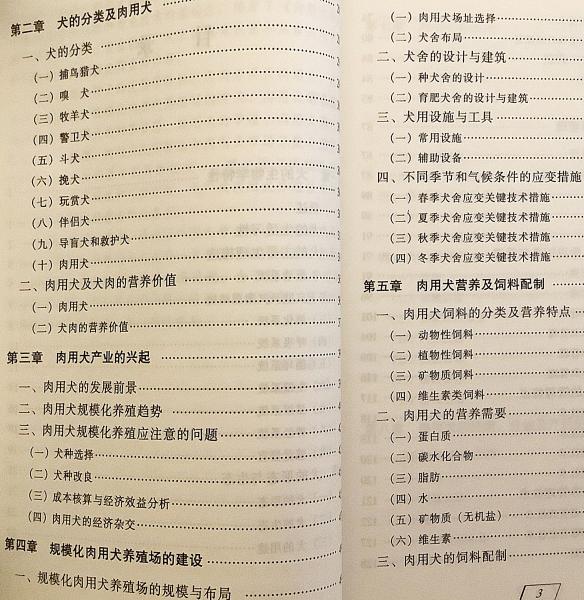 第二章 犬的分类及肉用犬
一、犬的分类
（一）捕鸟猎犬
（二）嗅 犬
（三）牧羊犬
（四）警卫犬
（五）斗犬
（六）挽犬
（七）玩赏犬
（八）伴侣犬
（九）导盲犬和救护犬
（十）肉用犬
二、肉用犬及犬肉的营养价值
（一）肉用犬
（二）犬肉的营养价值
第三章 肉用犬产业的兴起
一、肉用犬的发展前景
二、肉用犬规模化养殖趋势
三、肉用犬规模化养殖应注意的问题
（一）犬种选择
（二）犬种改良
（三）成本核算与经济效益分析
（四）肉用犬的经济杂交
第四章 规模化肉用犬养殖场的建设
一、规模化肉用犬养殖场的规模与布局
（一）肉用犬场址选择
（二）犬舍布局
二、犬舍的设计与建筑
（一）种犬舍的设计
（二）育肥犬舍的设计与建筑
三、犬用设施与工具
（一）常用设施
（二）辅助设备
四、不同季节和气候条件的应变措施
（一）春季犬舍应变关键技术措施
（二）夏季犬舍应变关键技术措施
（三）秋季犬舍应变关键技术措施
（四）冬季犬舍应变关键技术措施
第五章 肉用犬营养及饲料配制
一、肉用犬饲料的分类及营养特点
（一）动物性饲料
（二）植物性饲料
（三）矿物质饲料
（四）维生素类饲料
二、肉用犬的营养需要
（一）蛋白质
（二）碳水化合物
（三）脂肪
（四）水
（五）矿物质（无机盐）
（六）维生素
三、肉用犬的饲料配制
3